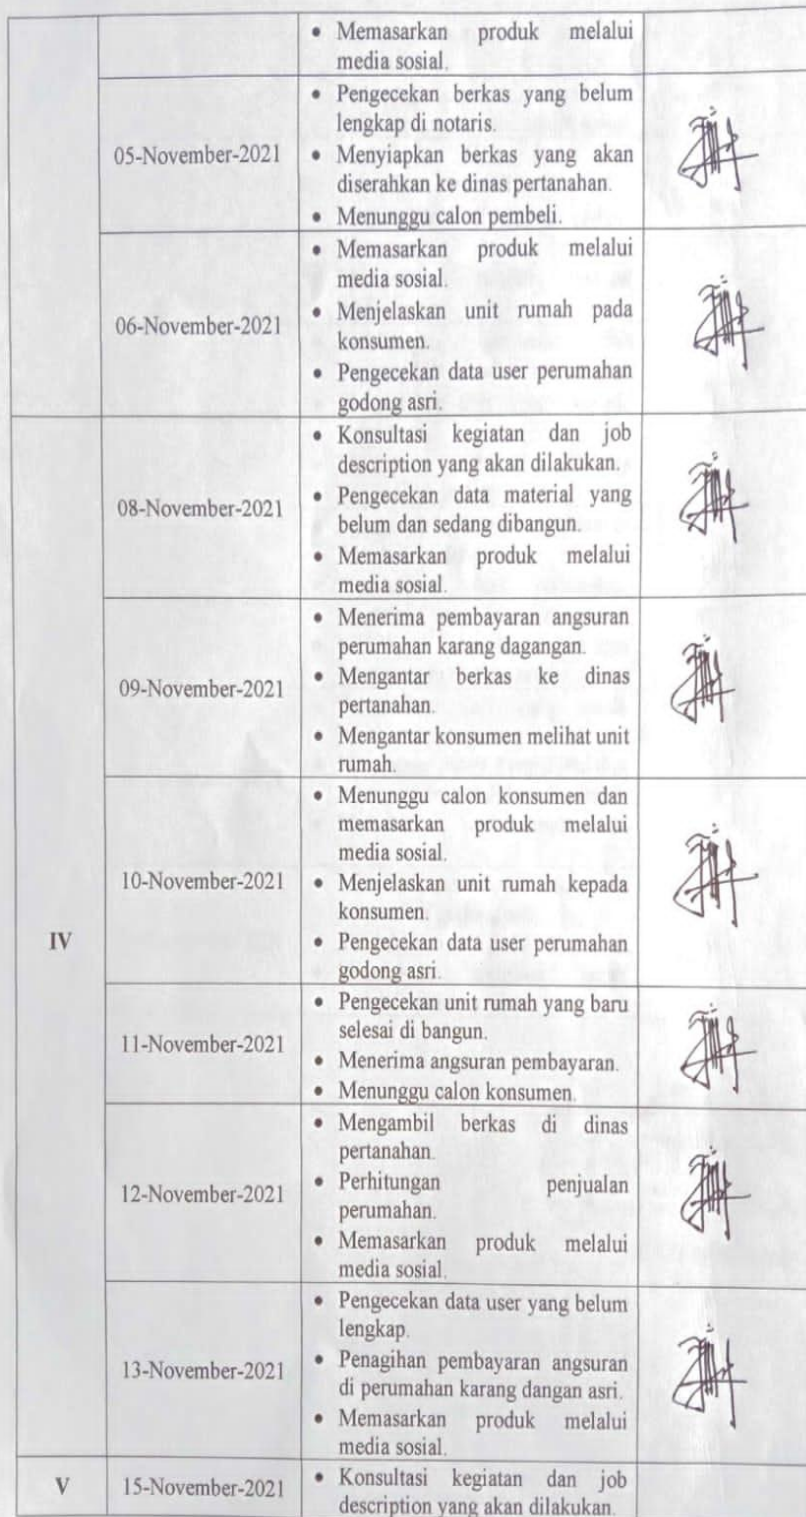 • Memasarkan produk melalui
media sosial.
05-November-2021
• Pengecekan berkas yang belum
lengkap di notaris.
• Menyiapkan berkas yang akan
diserahkan ke dinas pertanahan.
• Menunggu calon pembeli.
06-November-2021
• Memasarkan produk melalui
media sosial.
• Menjelaskan unit rumah pada
konsumen.
• Pengecekan data user perumahan
godong asri.
IV
08-November-2021
• Konsultasi kegiatan dan job
description yang akan dilakukan.
• Pengecekan data material yang
belum dan sedang dibangun.
• Memasarkan produk melalui
media sosial.
09-November-2021
• Menerima pembayaran angsuran
perumahan karang dagangan.
• Mengantar berkas ke dinas
pertanahan.
• Mengantar konsumen melihat unit
rumah.
10-November-2021
• Menunggu calon konsumen dan
memasarkan produk melalui
media sosial.
• Menjelaskan unit rumah kepada
konsumen.
• Pengecekan data user perumahan
godong asri.
11-November-2021
• Pengecekan unit rumah yang baru
selesai di bangun.
• Menerima angsuran pembayaran.
• Menunggu calon konsumen.
12-November-2021
• Mengambil berkas di dinas
pertanahan.
• Perhitungan penjualan
perumahan.
• Memasarkan produk melalui
media sosial.
13-November-2021
• Pengecekan data user yang belum
lengkap.
• Penagihan pembayaran angsuran
di perumahan karang dangan asri.
• Memasarkan produk melalui
media sosial.
V
15-November-2021
• Konsultasi kegiatan dan job
description yang akan dilakukan.